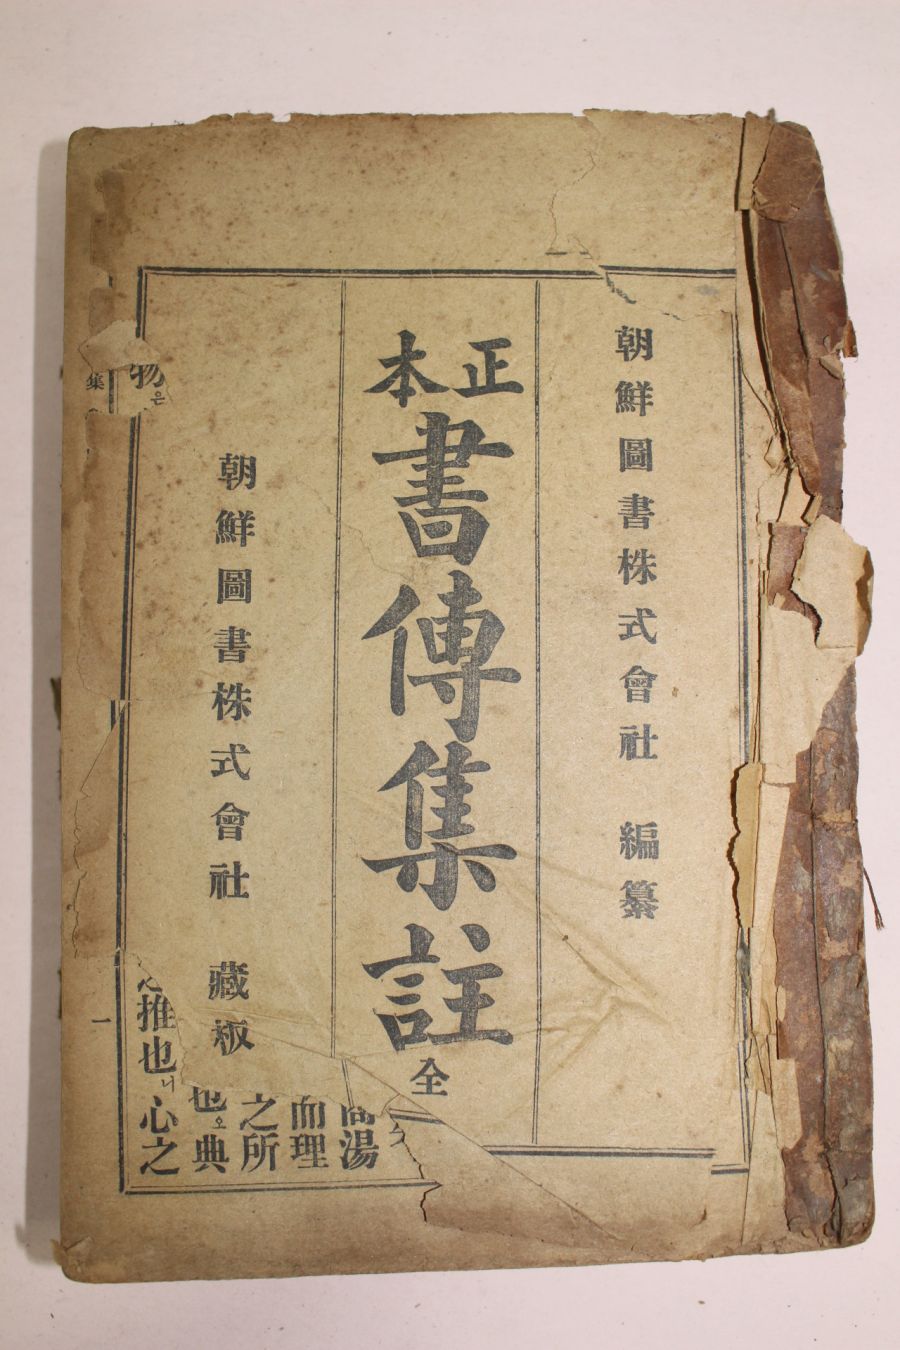 朝鮮圖書株式會社 編纂
正本
書傳集註 全
朝鮮圖書株式會社 藏板
湯
而理
之所
也오典
推也니心之
物은
集
一